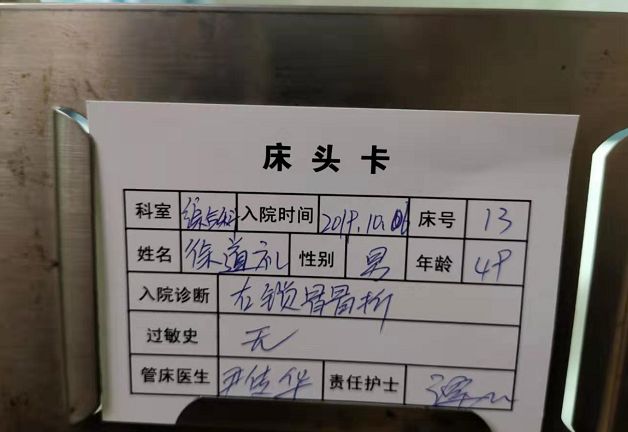 床头卡
科室 综合科 入院时间 2019.10.06 床号 13
姓名 徐道礼 性别 男 年龄 49
入院诊断 右锁骨骨折
过敏史 无
管床医生 尹佳华 责任护士